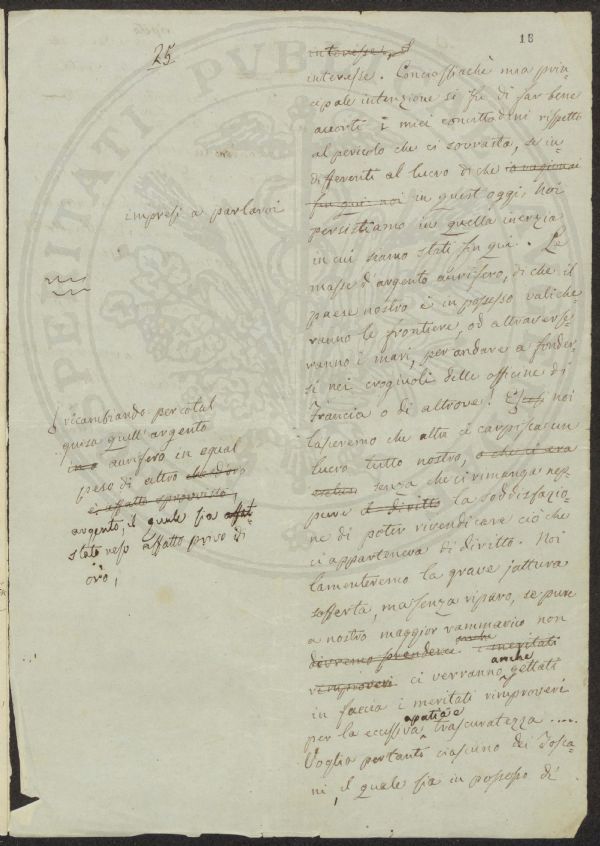 25
18
impresi a parlarvi
ricambiando per cotal
guisa quell'argento
aurifero in egual
peso di altro che d'oro
è affatto sprovvisto,
argento, il quale sia affat
stato reso affatto privo di
oro,
interesse,
interesse. Conciosiachè mia prin-
cipale intenzione si fu di far bene
accorti i miei concittadini rispetto
al pericolo che ci sovrasta, se in-
differenti al lucro di che
fin qui noi in quest'oggi, noi
persistiamo in quella inerzia
in cui siamo stati fin qui. Le
masse d'argento aurifero, di che il
paese nostro è in possesso valiche-
ranno le frontiere, od attraverse-
ranno i mari, per andare a fonder-
si nei crogiuoli delle officine di
Francia o di altrove! E noi
lasceremo che altri ci carpisca un
lucro tutto nostro, o che ci era
senza che ci rimanga nep-
pure il diritto la soddisfazio-
ne di poter rivendicare ciò che
ci apparteneva di diritto. Noi
lamenteremo la grave jattura
sofferta, ma senza riparo, se pure
a nostro maggior rammarico non
dovremo prenderci anche i meritati
rimproveri ci verranno anche gettati
in faccia i meritati rimproveri
per la eccessiva apatia e trascuratezza .....
Voglia pertanto ciascuno dei Tosca-
ni, il quale sia in possesso di